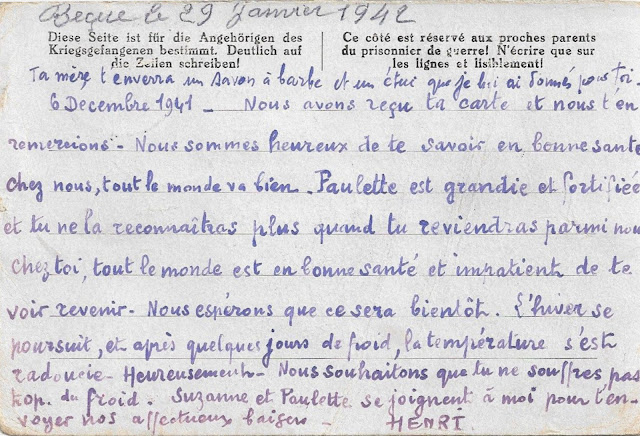 Reçue le 29 Janvier 1942
Diese Seite ist für die Angehörigen des
Kriegsgefangenen bestimmt. Deutlich auf
die Zeilen schreiben!
Ce côté est réservé aux proches parents
du prisonnier de guerre! N'écrire que sur
les lignes et lisiblement!
Ta mère t'enverra un savon à barbe et un étui que je lui ai donnés pour toi.
6 Decembre 1941 - Nous avons reçu ta carte et nous t'en
remercions - Nous sommes heureux de te savoir en bonne santé
chez nous, tout le monde va bien. Paulette est grandie et fortifiée
et tu ne la reconnaîtras plus quand tu reviendras parmi nou
chez toi, tout le monde est en bonne santé et impatient de te
voir revenir - Nous espérons que ce sera bientôt. L'hiver se
poursuit, et après quelques jours de froid, la température s'est
radoucie - Heureusement - Nous souhaitons que tu ne souffres pas
trop du froid. Suzanne et Paulette se joignent à moi pour t'en-
voyer nos affectueux baisers - HENRI